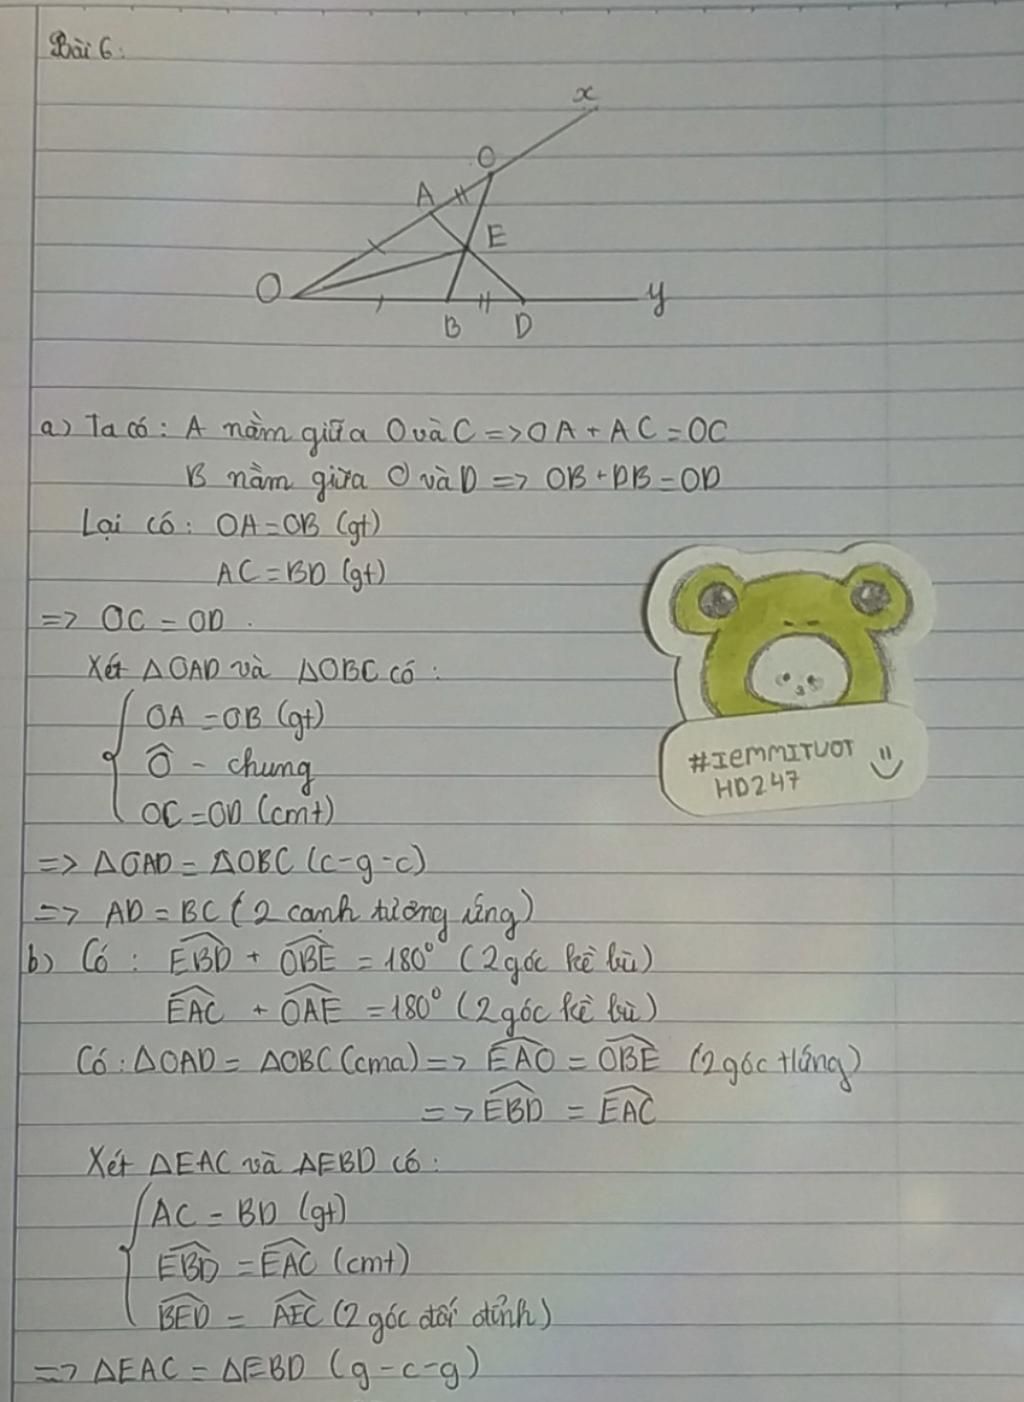 Bài 6:
x
C
A
E
O
B
D
y
a) Ta có: A nằm giữa O và C => OA + AC = OC
B nằm giữa O và D => OB + DB = OD
Lại có: OA = OB (gt)
AC = BD (gt)
=> OC = OD.
Xét ΔOAD và ΔOBC có:
OA = OB (gt)
Ô - chung
OC = OD (cmt)
=> ΔOAD = ΔOBC (c-g-c)
=> AD = BC (2 cạnh tương ứng)
b) Có: \widehat{EBD} + \widehat{OBE} = 180° (2 góc kề bù)
\widehat{EAC} + \widehat{OAE} = 180° (2 góc kề bù)
Có: ΔOAD = ΔOBC (cma) => \widehat{EAO} = \widehat{OBE} (2 góc tứng)
=> \widehat{EBD} = \widehat{EAC}
Xét ΔEAC và ΔEBD có:
AC = BD (gt)
\widehat{EBD} = \widehat{EAC} (cmt)
\widehat{BED} = \widehat{AEC} (2 góc đối đỉnh)
=> ΔEAC = ΔEBD (g-c-g)
#IEMMITUOT
HD247